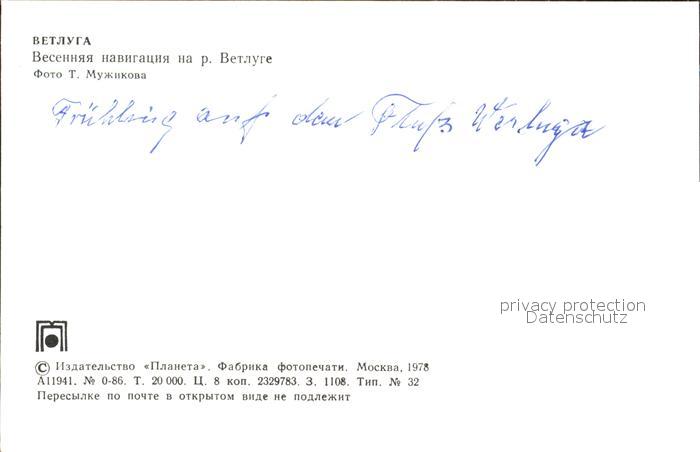 ВЕТЛУГА
Весенняя навигация на р. Ветлуге
Фото Т. Мужикова
Frühling auf dem Fluß Wetluga
privacy protection
Datenschutz
© Издательство «Планета». Фабрика фотопечати. Москва, 1978
А11941. № 0-86. Т. 20 000. Ц. 8 коп. 2329783. З. 1108. Тип. № 32
Пересылке по почте в открытом виде не подлежит